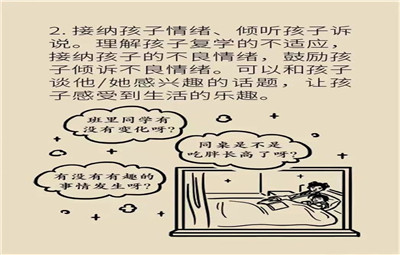 2. 接纳孩子情绪、倾听孩子诉
说。理解孩子复学的不适应，
接纳孩子的不良情绪，鼓励孩
子倾诉不良情绪。可以和孩子
谈他/她感兴趣的话题，让孩
子感受到生活的乐趣。
班里同学有
没有变化呀?
同桌是不是
吃胖长高了呀?
有没有有趣的
事情发生呀?